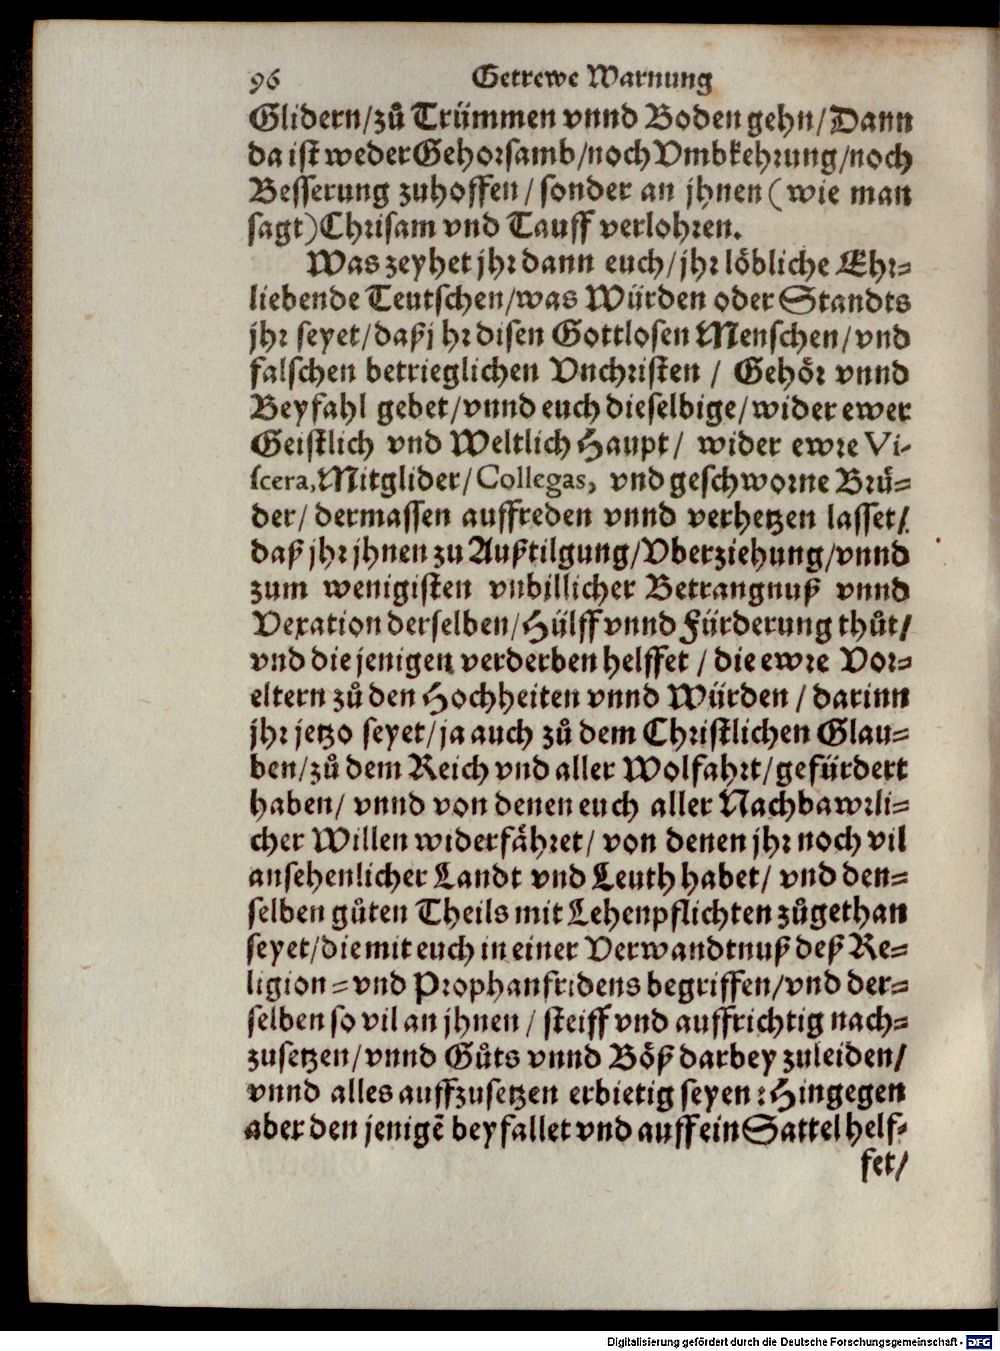 96 Getrewe Warnung
Glidern/zů Trümmen vnnd Boden gehn/Dann
da ist weder Gehorsamb/noch Vmbkehrung/noch
Besserung zuhoffen/sonder an jhnen (wie man
sagt) Chrisam vnd Tauff verlohren.
Was zeyhet jhr dann euch/jhr löbliche Ehr=
liebende Teutschen/was Würden oder Standts
jhr seyet/daß jhr disen Gottlosen Menschen/vnd
falschen betrieglichen Vnchristen / Gehör vnnd
Beyfahl gebet/vnnd euch dieselbige/wider ewer
Geistlich vnd Weltlich Haupt/ wider ewre Vi-
scera, Mitglider/Collegas, vnd geschworne Brü=
der/ dermassen auffreden vnnd verhetzen lasset/
daß jhr jhnen zu Außtilgung/Vberziehung/vnnd
zum wenigisten vnbillicher Betrangnuß vnnd
Vexation derselben/Hülff vnnd Fürderung thůt/
vnd die jenigen verderben helffet / die ewre Vor=
eltern zů den Hochheiten vnnd Würden / darinn
jhr jetzo seyet/ja auch zů dem Christlichen Glau=
ben/zů dem Reich vnd aller Wolfahrt/gefürdert
haben/ vnnd von denen euch aller Nachbawrli=
cher Willen widerfähret/ von denen jhr noch vil
ansehenlicher Landt vnd Leuth habet/ vnd den=
selben gůten Theils mit Lehenpflichten zůgethan
seyet/die mit euch in einer Verwandtnuß deß Re=
ligion= vnd Prophanfridens begriffen/vnd der=
selben so vil an jhnen / steiff vnd auffrichtig nach=
zusetzen/vnnd Gůts vnnd Böß darbey zuleiden/
vnnd alles auffzusetzen erbietig seyen: Hingegen
aber den jenigē beyfallet vnd auff ein Sattel helf=
fet/
Digitalisierung gefördert durch die Deutsche Forschungsgemeinschaft - DFG